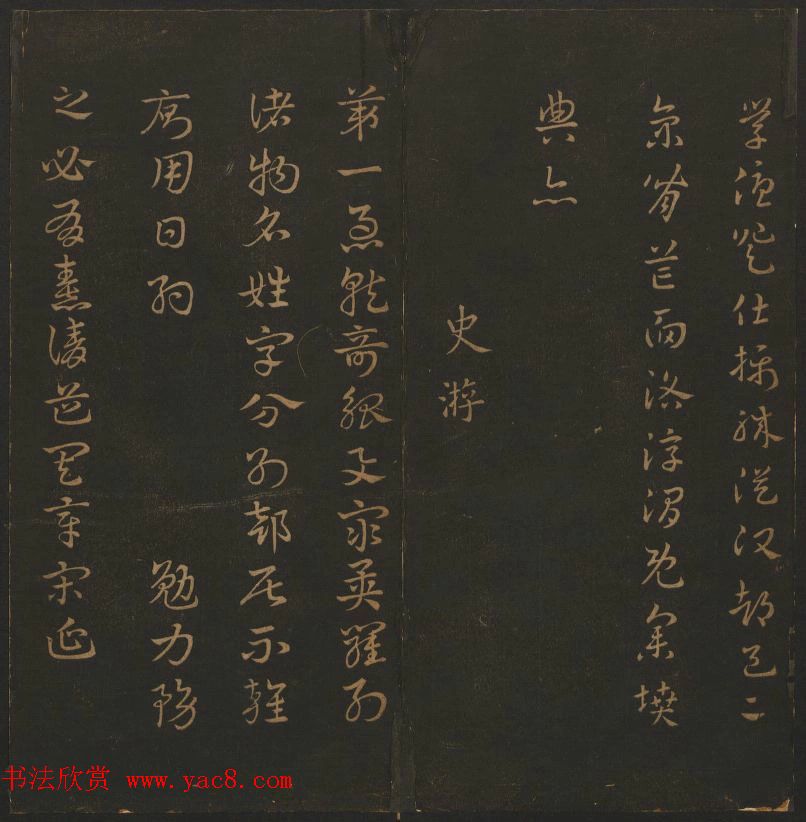 學優登仕攝職從政都邑二
京背芒面洛浮渭既集墳
典亦
史游
第一急就奇觚與衆異羅列
諸物名姓字分別部居不雜
廁用日約　勉力務
之必有憙請道其章宋延
书法欣赏 www.yac8.com